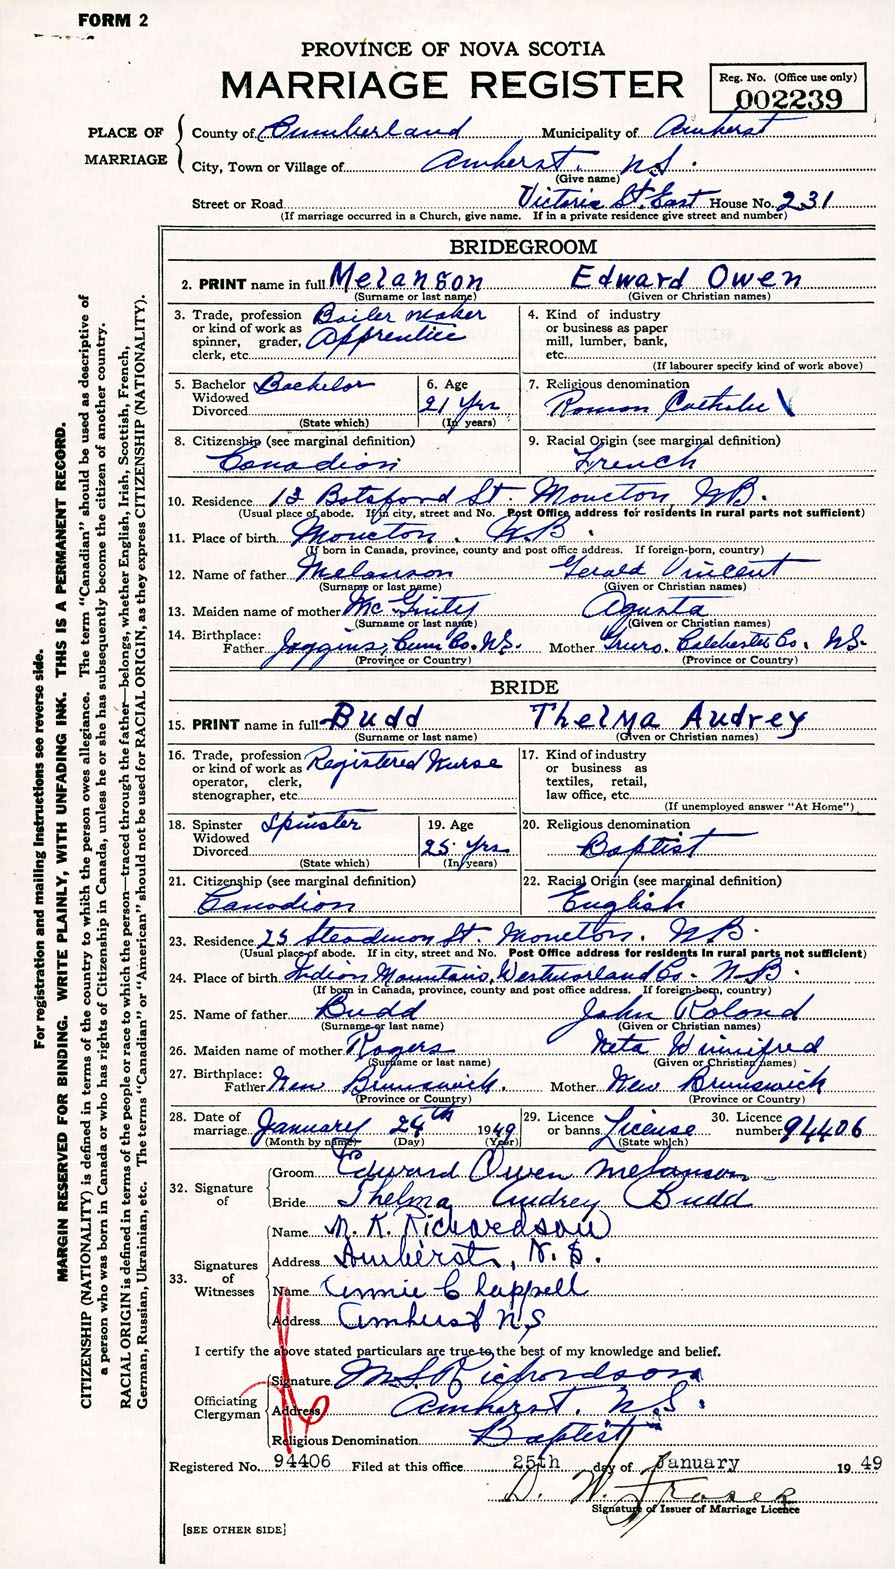 FORM 2
PROVINCE OF NOVA SCOTIA
MARRIAGE REGISTER
Reg. No. (Office use only)
002239
PLACE OF MARRIAGE
County of Cumberland Municipality of Amherst
City, Town or Village of Amherst. N.S.
(Give name)
Street or Road Victoria St. East House No. 231
(If marriage occurred in a Church, give name. If in a private residence give street and number)
BRIDEGROOM
2. PRINT name in full Melanson Edward Owen
(Surname or last name) (Given or Christian names)
3. Trade, profession or kind of work as spinner, grader, clerk, etc. Boiler Maker Apprentice
4. Kind of industry or business as paper mill, lumber, bank, etc.
(If labourer specify kind of work above)
5. Bachelor Widowed Divorced Bachelor
(State which)
6. Age 21 Yrs.
(In years)
7. Religious denomination Roman Catholic
8. Citizenship (see marginal definition) Canadian
9. Racial Origin (see marginal definition) French
10. Residence 13 Botsford St. Moncton, N.B.
(Usual place of abode. If in city, street and No. Post Office address for residents in rural parts not sufficient)
11. Place of birth Moncton. N.B.
(If born in Canada, province, county and post office address. If foreign-born, country)
12. Name of father Melanson Gerald Vincent
(Surname or last name) (Given or Christian names)
13. Maiden name of mother McGinty Agusta
(Surname or last name) (Given or Christian names)
14. Birthplace: Father Joggins, Cum Co. N.S. Mother Truro. Colchester Co. N.S.
(Province or Country) (Province or Country)
BRIDE
15. PRINT name in full Budd Thelma Audrey
(Surname or last name) (Given or Christian names)
16. Trade, profession or kind of work as operator, clerk, stenographer, etc. Registered Nurse
17. Kind of industry or business as textiles, retail, law office, etc.
(If unemployed answer "At Home")
18. Spinster Widowed Divorced Spinster
(State which)
19. Age 25 Yrs.
(In years)
20. Religious denomination Baptist
21. Citizenship (see marginal definition) Canadian
22. Racial Origin (see marginal definition) English
23. Residence 25 Steadman St. Moncton. N.B.
(Usual place of abode. If in city, street and No. Post Office address for residents in rural parts not sufficient)
24. Place of birth Indian Mountain, Westmorland Co. N.B.
(If born in Canada, province, county and post office address. If foreign-born, country)
25. Name of father Budd John Roland
(Surname or last name) (Given or Christian names)
26. Maiden name of mother Rogers Neta Winnifred
(Surname or last name) (Given or Christian names)
27. Birthplace: Father New Brunswick. Mother New Brunswick
(Province or Country) (Province or Country)
28. Date of marriage January 24th 1949
(Month by name) (Day) (Year)
29. Licence or banns License
(State which)
30. Licence number 94406
32. Signature of
Groom Edward Owen Melanson
Bride Thelma Audrey Budd
33. Signatures of Witnesses
Name N. K. Richardson
Address Amherst, N.S.
Name Annie Chappell
Address Amherst N.S.
I certify the above stated particulars are true to the best of my knowledge and belief.
Officiating Clergyman
Signature M S Richardson
Address Amherst. N.S.
Religious Denomination Baptist
Registered No. 94406 Filed at this office 25th day of January 19 49
D. W. Fraser
Signature of Issuer of Marriage Licence
[SEE OTHER SIDE]
For registration and mailing instructions see reverse side.
MARGIN RESERVED FOR BINDING. WRITE PLAINLY, WITH UNFADING INK. THIS IS A PERMANENT RECORD.
CITIZENSHIP (NATIONALITY) is defined in terms of the country to which the person owes allegiance. The term "Canadian" should be used as descriptive of
a person who was born in Canada or who has rights of Citizenship in Canada, unless he or she has subsequently become the citizen of another country.
RACIAL ORIGIN is defined in terms of the people or race to which the person—traced through the father—belongs, whether English, Irish, Scottish, French,
German, Russian, Ukrainian, etc. The terms "Canadian" or "American" should not be used for RACIAL ORIGIN, as they express CITIZENSHIP (NATIONALITY).